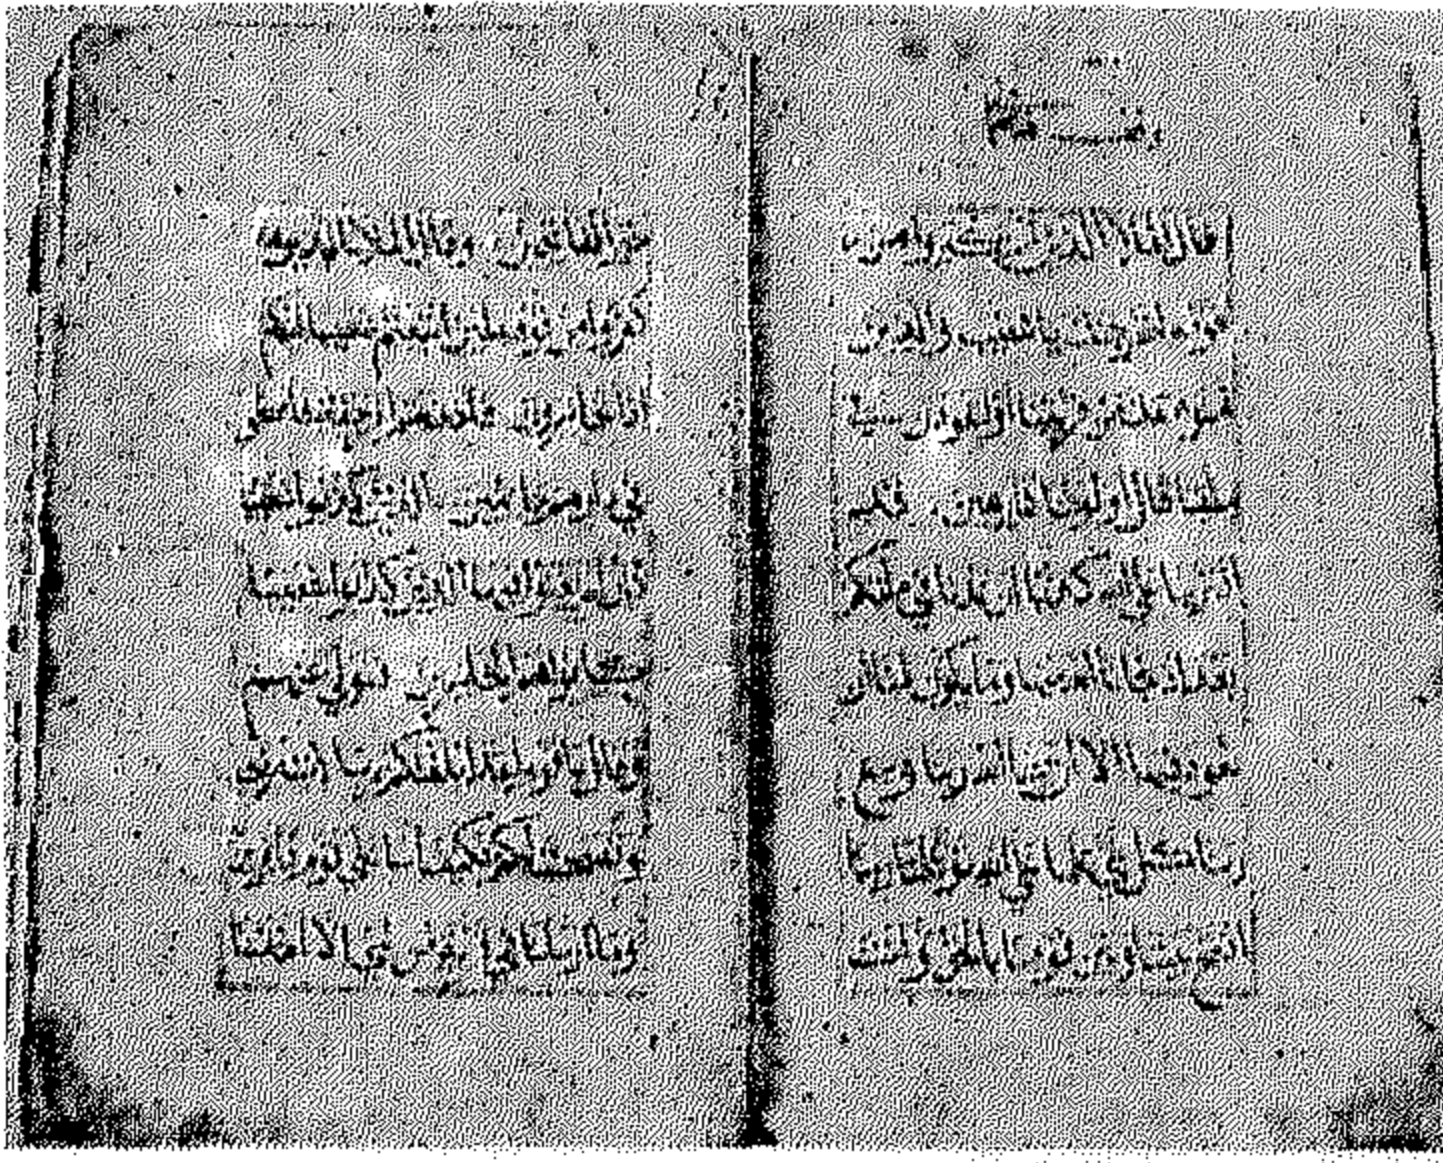 قال الملا الذين استكبروا من
قومه لنخرجنك يا شعيب والذين
امنوا معك من قريتنا او لتعودن في
ملتنا قال اولو كنا كارهين قد
افترينا على الله كذبا ان عدنا في ملتكم
بعد اذ نجانا الله منها وما يكون لنا ان
نعود فيها الا ان يشا الله ربنا وسع
ربنا كل شي علما على الله توكلنا ربنا
افتح بيننا وبين قومنا بالحق وانت
خير الفاتحين وقال الملا الذين
كفروا من قومه لئن اتبعتم شعيبا انكم
اذا لخاسرون فاخذتهم الرجفة فاصبحوا
في دارهم جاثمين الذين كذبوا شعيبا
كان لم يغنوا فيها الذين كذبوا شعيبا
كانوا هم الخاسرين فتولى عنهم
وقال يا قوم لقد ابلغتكم رسالات ربي
ونصحت لكم فكيف اسا على قوم كافرين
وما ارسلنا في قرية من نبي الا اخذنا